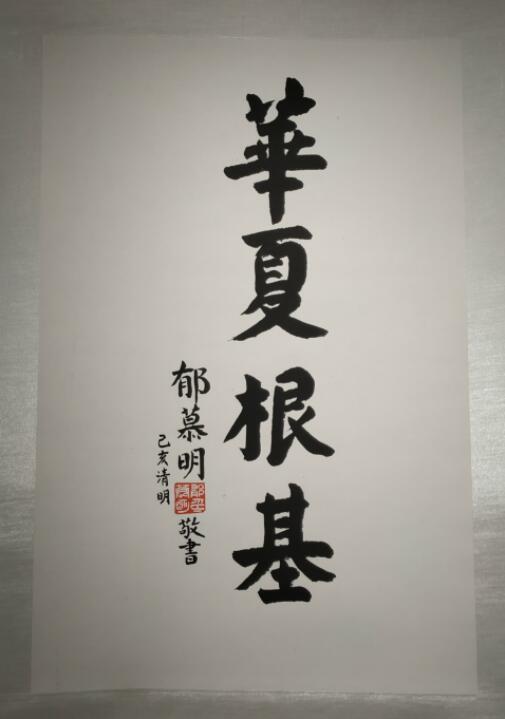 華夏根基
郁慕明
敬書
己亥清明